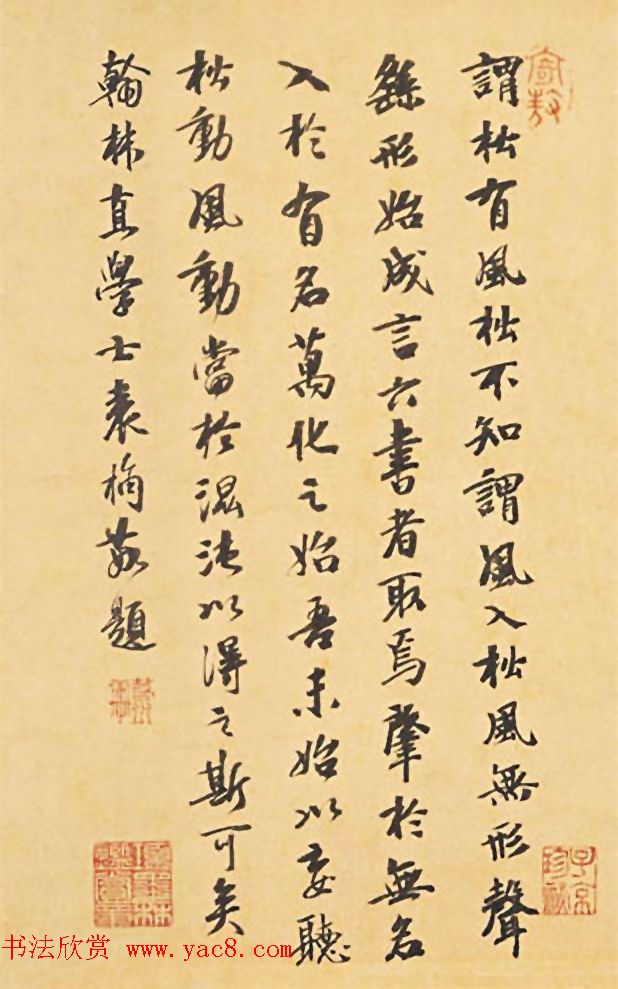 謂松有風松不知謂風入松風無形聲
繇形始成言六書者取焉肇於無名
入於有名萬化之始吾未始以妄聽
松動風動當於混沌以得之斯可矣
翰林直學士袁桷敬題
子京
珍秘
书法欣赏 www.yac8.com